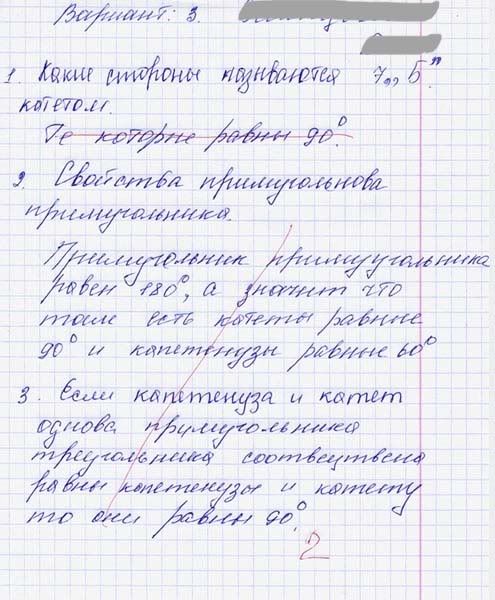 Вариант: 3.
1. Какие стороны называются 7„Б"
катетом.
Те которые равны 90°.
2. Свойства примугольнова
примугольника.
Примугольник примуугольника
равен 180°, а значит что
там есть катеты равные
90° и капетенузы равные 60°
3. Если капетенуза и катет
однова прумугольника
треугольника соотвецтвена
равны капетенузы и катету
то они равны 90°.
2